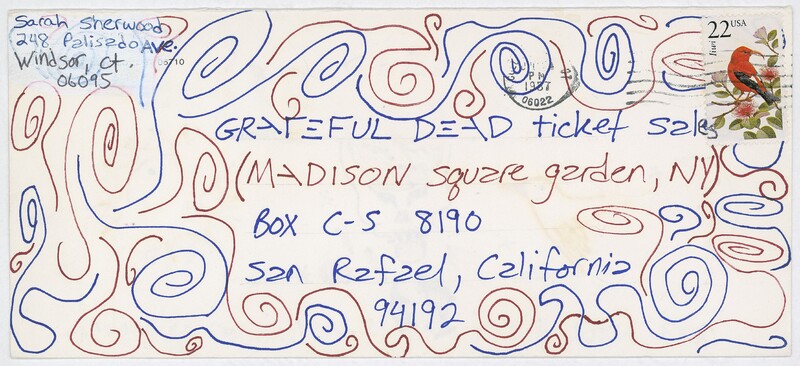 Sarah Sherwood
248 Palisado Ave.
Windsor, Ct.
06095
06710
PM
1987
06022
22 USA
Iiwi
GRATEFUL DEAD ticket sales
(MADISON square garden, NY)
BOX C-S 8190
San Rafael, California
94192